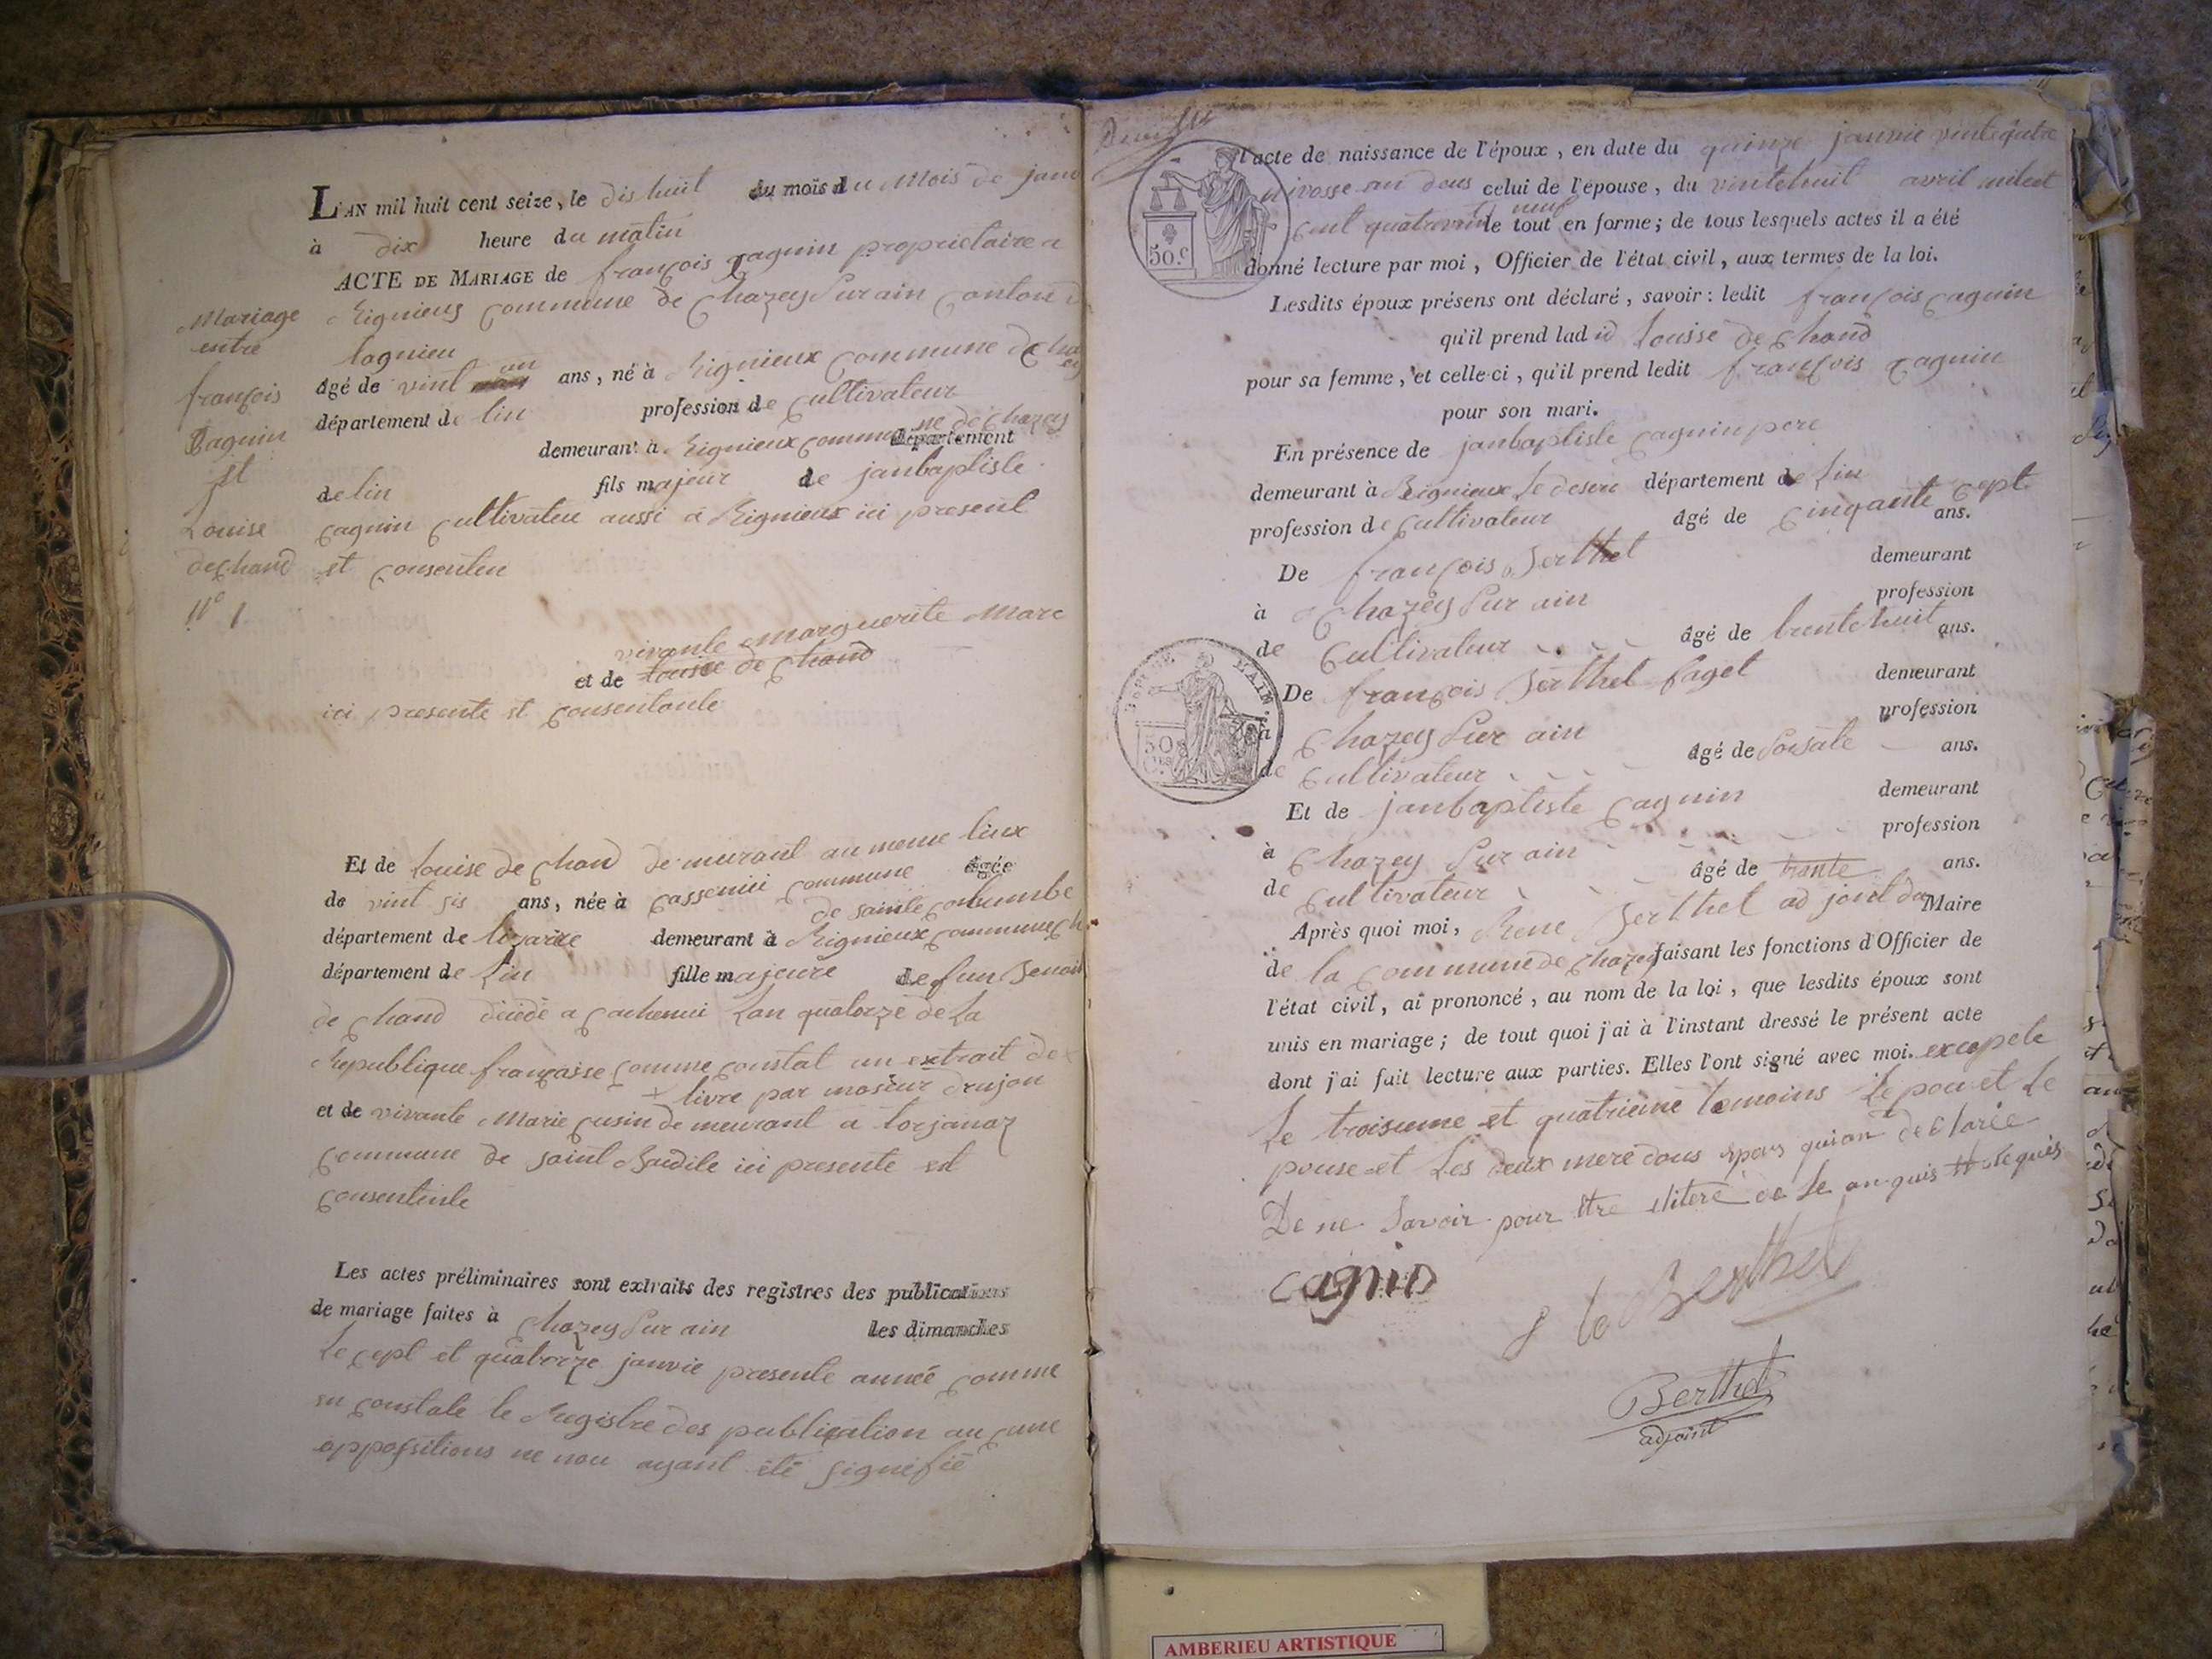 Mariage
entre
françois
Cagnin
et
Louise
dechand
N° 1
L'AN mil huit cent seize, le dishuit du mois du Mois de janv
à dix heure du matin
ACTE DE MARIAGE de françois Cagnin proprietaire a
Rignieux Commune de Chazey Sur ain Canton d
lagnieu
âgé de vint un ans, né à Rignieux Commune de Cha
département de lin profession de Cultivateur
demeurant à Rignieux commune de Chazey département
de lin fils majeur de janbaptiste
Cagnin Cultivateu aussi a Rignieux ici present
et Consenten
vivante Marguerite Marc
et de Louise de Chand
ici presente et Consentante
Et de Louise de Chand de murant au meme liux âgée
de vint sis ans, née à Cassenui Commune de sainte Columbe
département de lizaire demeurant à Rignieux commune Ch
département de Lin fille majeure de fun Benoit
de Chand décédé a Cachenui Lan quatorze de La
Republique françaisse Comme Constat un extrait de
+ livre par mosieur drujon
et de vivante Marie Cusin de meurant a torjanaz
Commune de saint Baudile ici presente est
Consentente
Les actes préliminaires sont extraits des registres des publications
de mariage faites à Chazey Sur ain les dimanches
Le Cept et quatorze janvie presente année Comme
en Constate le Registre des publication au cune
oppositions ne nou ayant été Signifié
l'acte de naissance de l'époux, en date du quinze janvie vintequatre
nivosse an deus celui de l'épouse, du vintehuit avril milcet
Cent quatrevint neuf le tout en forme; de tous lesquels actes il a été
donné lecture par moi, Officier de l'état civil, aux termes de la loi.
Lesdits époux présens ont déclaré, savoir: ledit françois Cagnin
qu'il prend lad id Louisse de Chand
pour sa femme, et celle-ci, qu'il prend ledit françois Cagnin
pour son mari.
En présence de janbaptiste Cagnin pere
demeurant à Rignieux Le deser département de Lin
profession de Cultivateur âgé de Cinqante Cept ans.
De françois Berthet demeurant
à Chazey Sur ain profession
de Cultivateur âgé de trentehuit ans.
De françois Berthet faget demeurant
à Chazey Sur ain profession
de Cultivateur âgé de Soisate ans.
Et de janbaptiste Cagnin demeurant
à Chazey Sur ain profession
de Cultivateur âgé de trante ans.
Après quoi moi, Rene Berthet ad joint du Maire
de la Commune de Chazey faisant les fonctions d'Officier de
l'état civil, ai prononcé, au nom de la loi, que lesdits époux sont
unis en mariage; de tout quoi j'ai à l'instant dressé le présent acte
dont j'ai fait lecture aux parties. Elles l'ont signé avec moi. excepete
Le troisieme et quatrieme temoins Le pou et Le
pouse et Les deux mere dous epous quion declarée
De ne Savoir pour être eliteré de Le anquis Requis
Cagnin
Berthet
Berthet
adjoint
50.c
50
AMBERIEU ARTISTIQUE